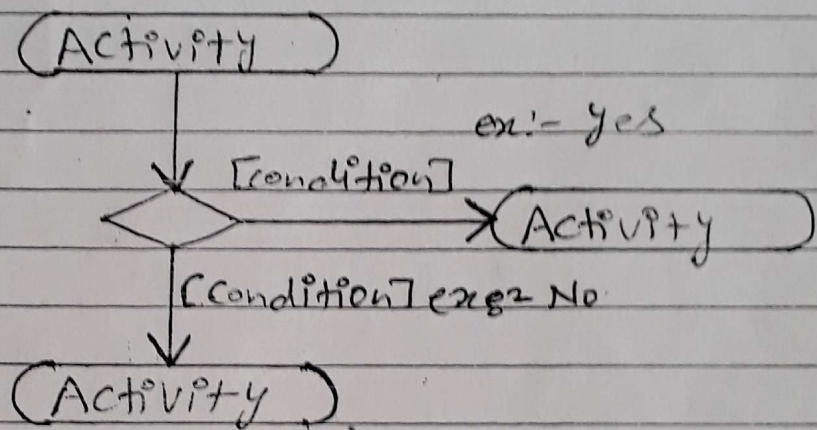 Activity
ex:- Yes
[condition]
Activity
[Condition] ex:- No
Activity